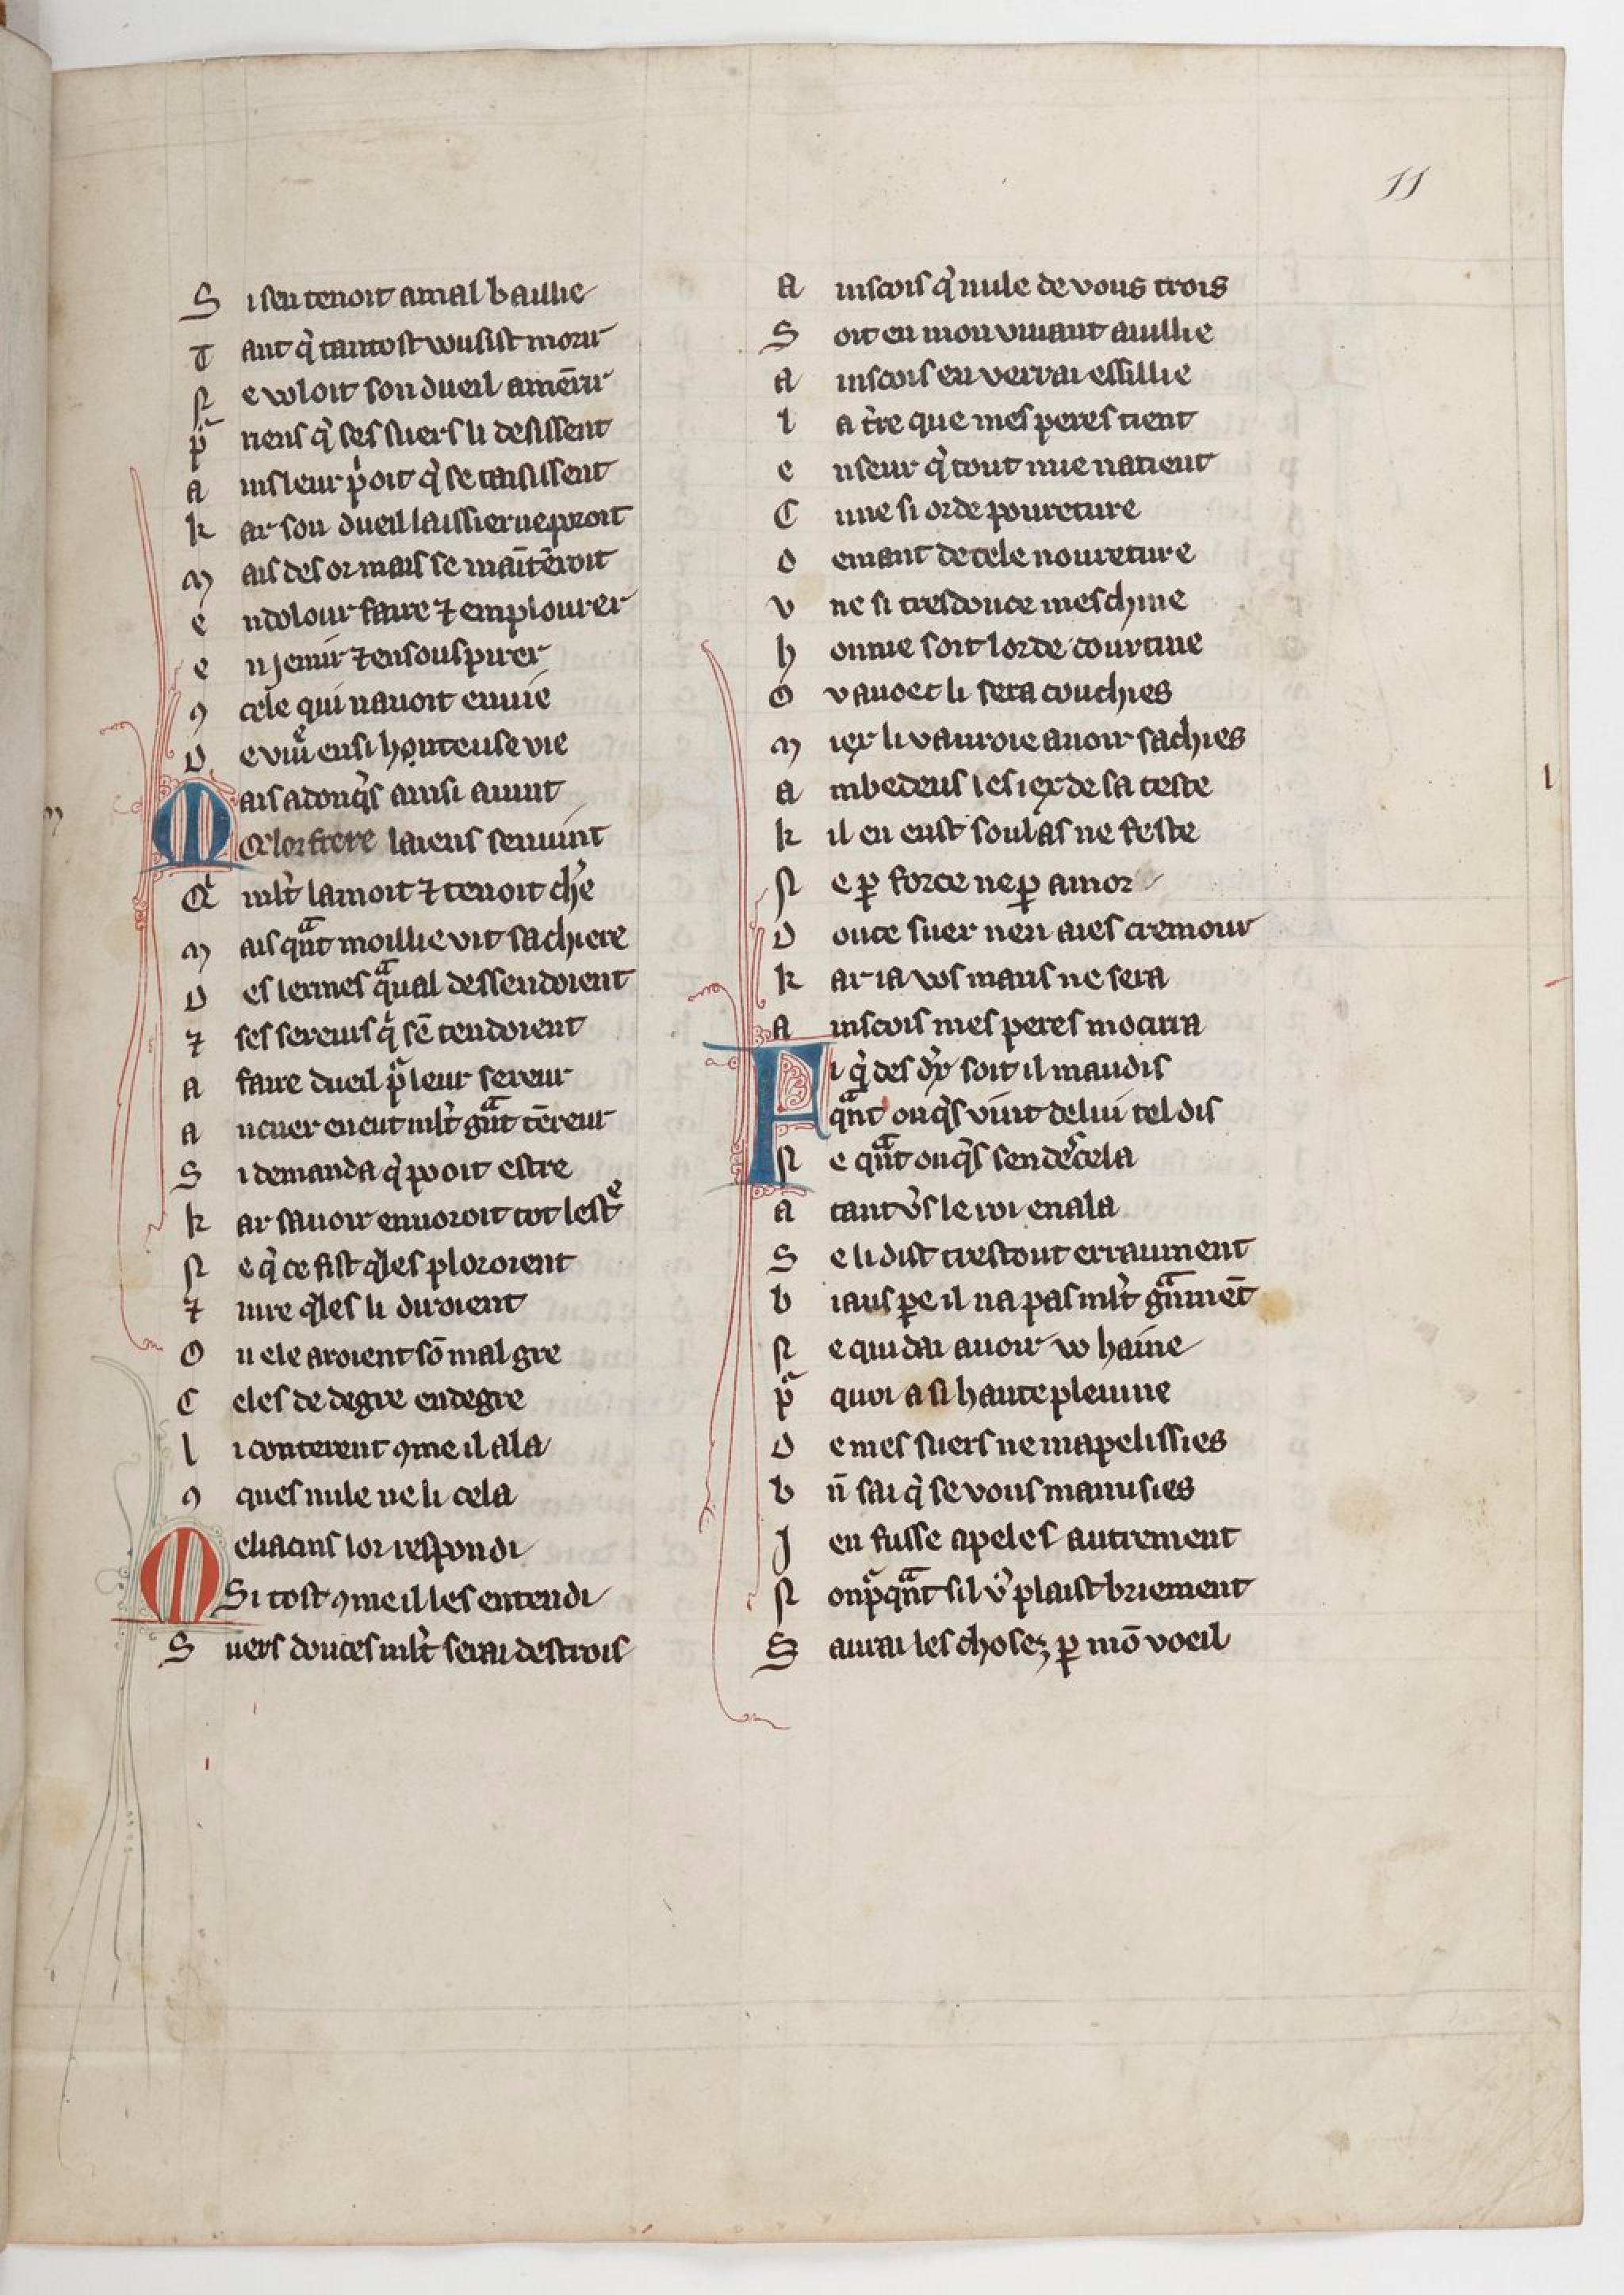 11
S i sen tenoit a mal baillie
T ant q̓ tantost vousist morir
N e voloit son dueil amērir
p̃ riens q̓ ses suers li desissent
A ins leur p̓oit q̓ se taisissent
k ar son dueil laissier ne poroit
M ais des or mais se maīt̄eroit
E n dolour faire ⁊ em plourer
E n jemir ⁊ en souspirer
ꝯ cele qui nauoit enuie
D e viure ensi honteuse vie
M ais adonq̓s ainsi auint
Q̃ lor frere laiens seruint
Q i ml̓t lamoit ⁊ tenoit ch̓e
M ais qᵃnt moillie vit sa chiere
D es lermes qᵃual dessendoient
⁊ ses sereurs q̓ sē tendoient
A faire dueil p̃ leur sereur
A n cuer en eut ml̓t gᵃnt tēreur
S i demanda q̓ pooit estre
k ar sauoir en voroit tot lestᵉ
N e q̓ ce fist q̓les ploroient
⁊ iure q̓les li diroient
O u ele aroient sō mal gre
C eles de degre en degre
l i conterent ꝯme il ala
ꝯ ques nule ne li cela
M eliacins lor respondi
Si tost ꝯme il les entendi
S uers douces ml̓t serai destrois
A inscois q̓ nule de vous trois
S oit en mon viuant auillie
A inscois en verrai essillie
l a t̓re que mes peres tient
E nseur q̓tout nue natient
C une si orde poureture
D emant de tele noureture
V ne si tresdouce meschine
h onnie soit lorde courtine
O v auoec li sera couchies
M iex li vauroie auoir sachies
A mbedeus les iex de sa teste
k il en eust soulas ne feste
N e ꝑ force ne ꝑ amor
D ouce suer nen aies cremour
k ar ia vos maris ne sera
A inscois mes peres mocirra
F i q̓ des d̓x soit il maudis
qᵃnt onq̓s vint de lui tel dis
N e qᵃnt onq̓s sen descela
A tant v̓s le roi en ala
S e li dist trestout erraument
b iaus ꝑe il na pas ml̓t gᵃnmēt
N e quidai auoir vo haine
p̃ quoi a si haute pleuine
D e mes suers ne mapelissies
b n̄ sai q̓ se vous mamisies
J en fusse apeles autrement
N onp̃qᵃnt sil v̓ plaist briement
S aurai les choses ꝑ mō voeil